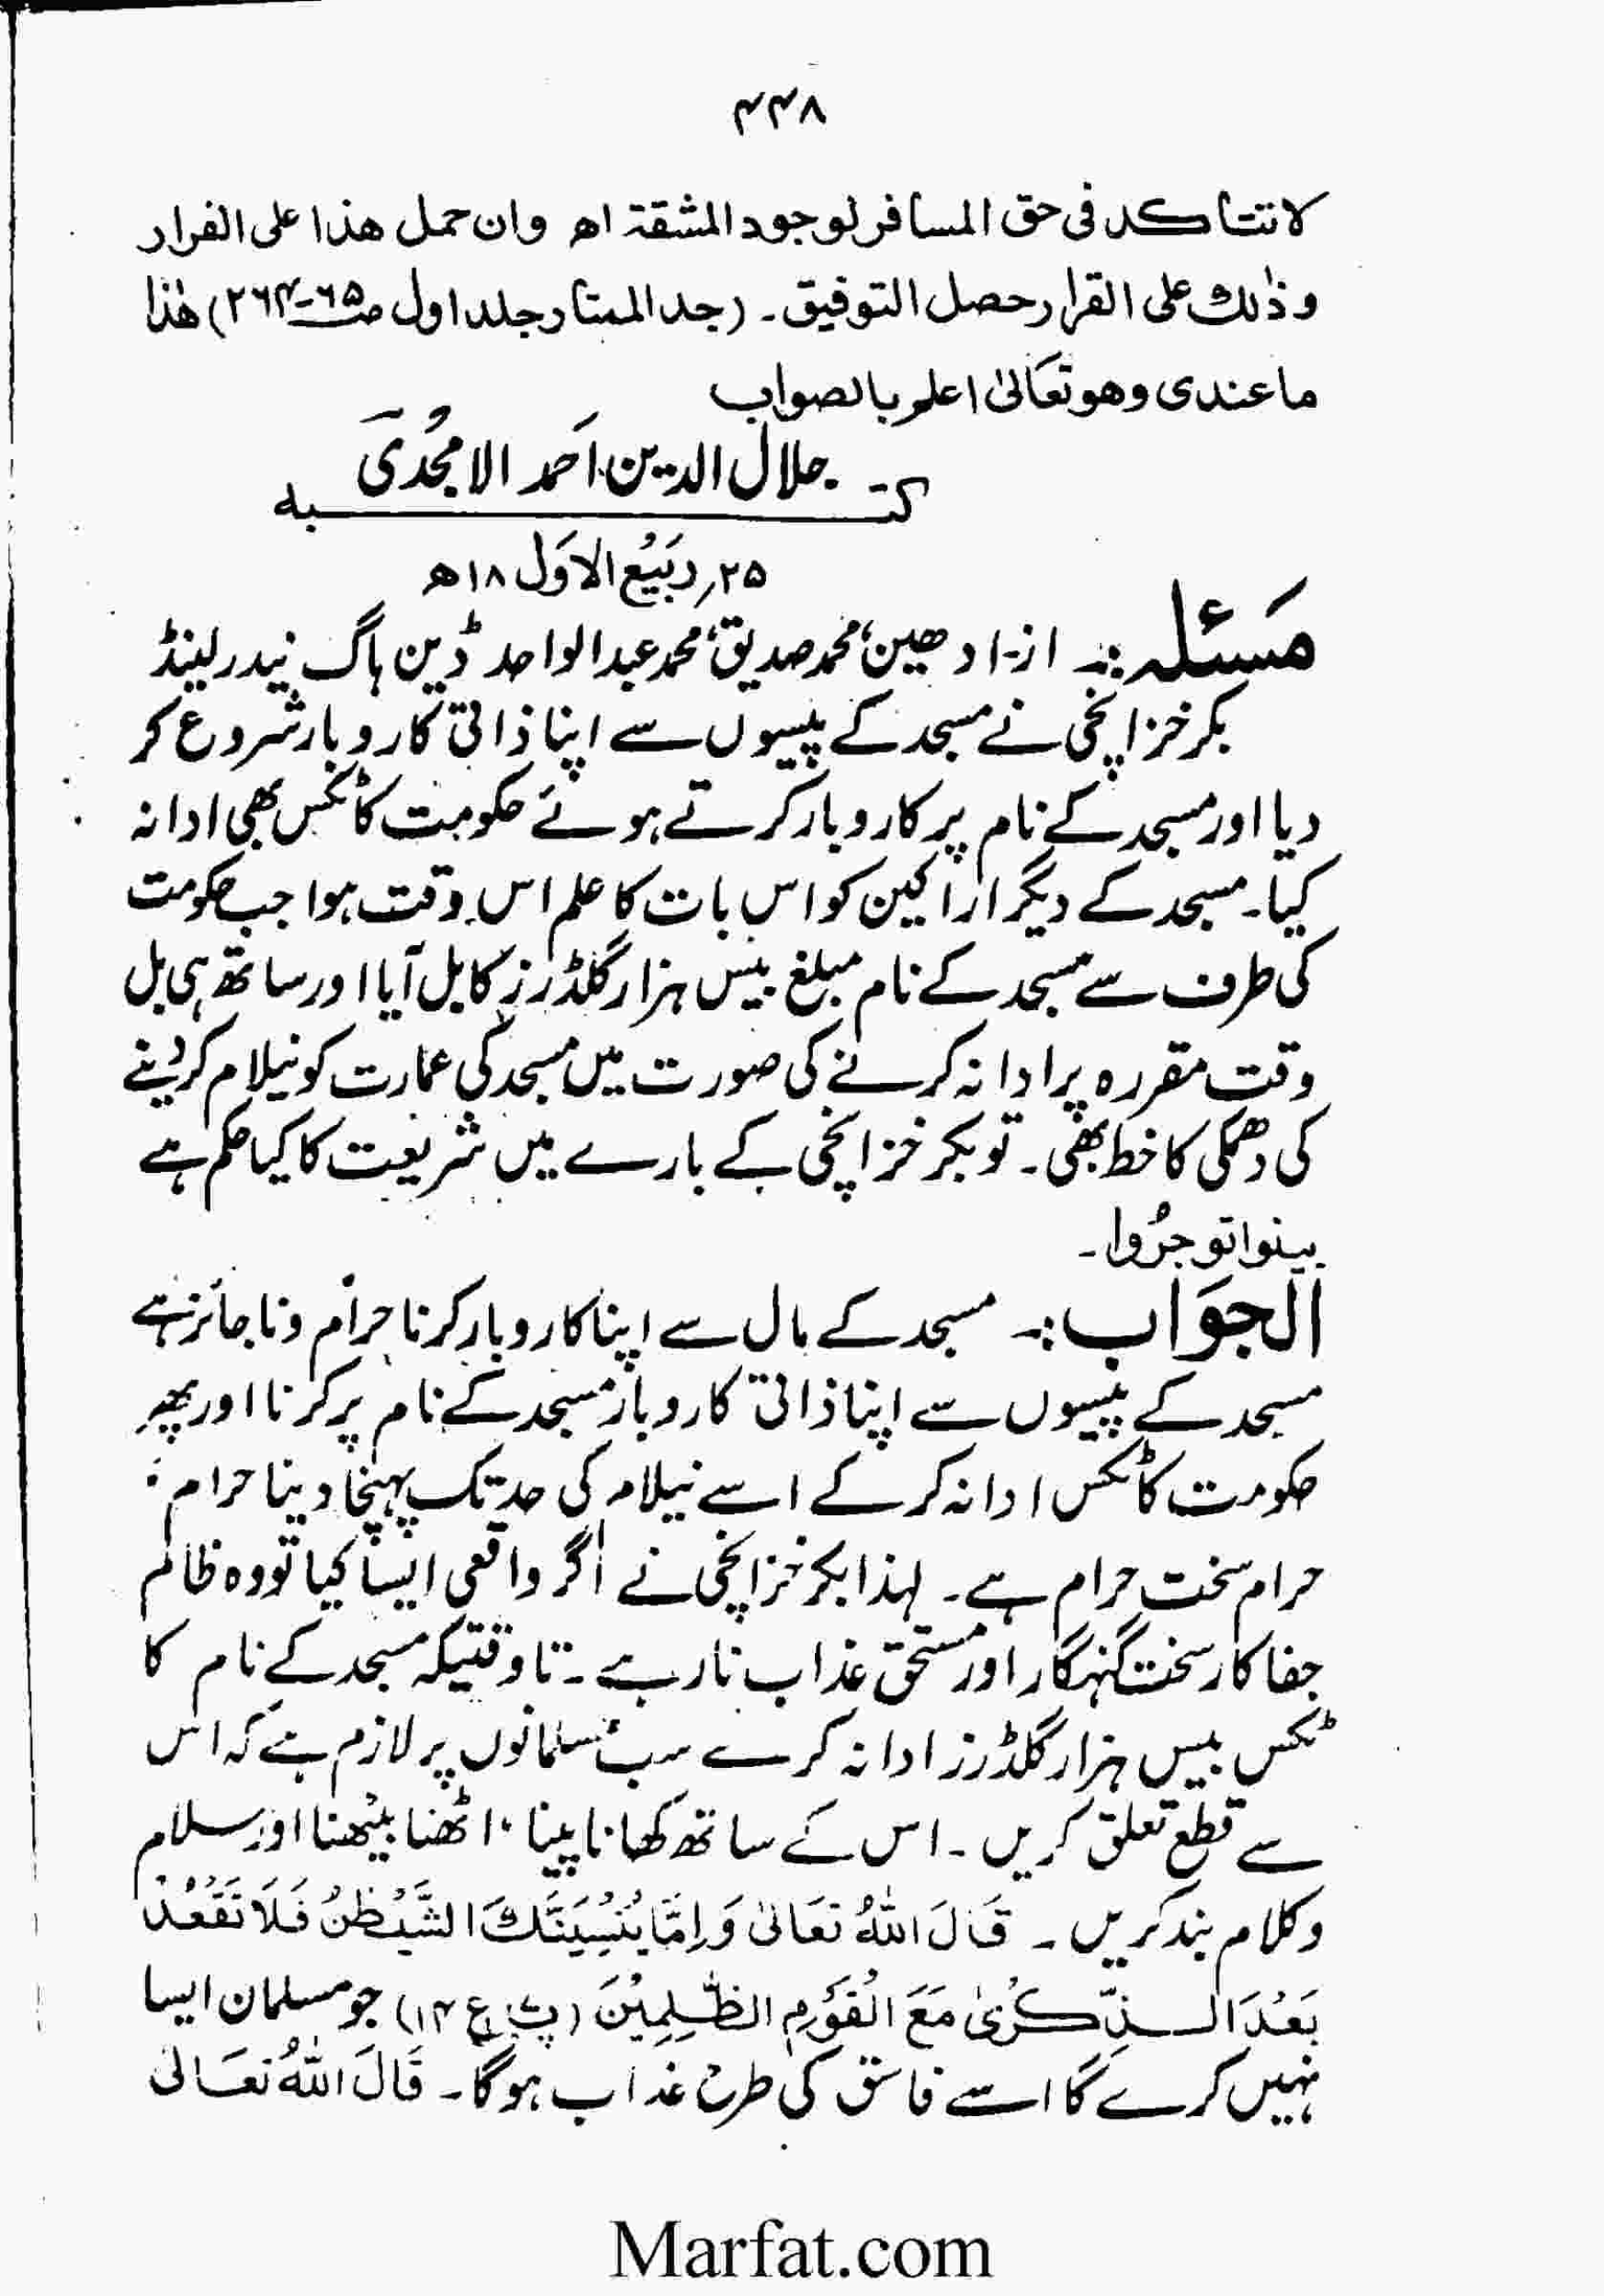 ۴۴۸
لا تتاکد فی حق المسافر لوجود المشقۃ اھ وان حمل ھذا علی الفرار
وذٰلک علی القرار حصل التوفیق۔ (جد الممتار جلد اول ص۶۵-۲۶۴) ھٰذا
ما عندی وھو تعَالیٰ اعلم بالصواب
جلال الدین احمد الامجدی
کتبہ
۲۵؍ ربیع الاول ۱۸ھ
مَسْئلہ :۔ از۔ ادھین، محمد صدیق، محمد عبدالواحد ڈین ہاگ نیدرلینڈ
بکر خزانچی نے مسجد کے پیسوں سے اپنا ذاتی کاروبار شروع کر
دیا اور مسجد کے نام پر کاروبار کرتے ہوئے حکومت کا ٹیکس بھی ادا نہ
کیا۔ مسجد کے دیگر اراکین کو اس بات کا علم اس وقت ہوا جب حکومت
کی طرف سے مسجد کے نام مبلغ بیس ہزار گلڈرز کا بل آیا اور ساتھ ہی بل
وقت مقررہ پر ادا نہ کرنے کی صورت میں مسجد کی عمارت کو نیلام کر دینے
کی دھمکی کا خط بھی۔ تو بکر خزانچی کے بارے میں شریعت کا کیا حکم ہے
بینوا توجرُوا۔
الجوَاب :۔ مسجد کے مال سے اپنا کاروبار کرنا حرام و ناجائز ہے
مسجد کے پیسوں سے اپنا ذاتی کاروبار مسجد کے نام پر کرنا اور پھر
حکومت کا ٹیکس ادا نہ کر کے اسے نیلام کی حد تک پہنچا دینا حرام،
حرام سخت حرام ہے۔ لہذا بکر خزانچی نے اگر واقعی ایسا کیا تو وہ ظالم
جفا کار سخت گنہگار اور مستحق عذاب نار ہے۔ تاوقتیکہ مسجد کے نام کا
ٹیکس بیس ہزار گلڈرز ادا نہ کرے سب مسلمانوں پر لازم ہے کہ اس
سے قطع تعلق کریں۔ اس کے ساتھ کھانا پینا، اٹھنا بیٹھنا اور سلام
و کلام بند کریں۔ قَالَ اللّٰہُ تَعَالیٰ وَاِمَّا یُنْسِیَنَّكَ الشَّیْطٰنُ فَلَا تَقْعُدْ
بَعْدَ الذِّكْرٰی مَعَ الْقَوْمِ الظّٰلِمِیْنَ (پ۷ ع ۱۴) جو مسلمان ایسا
نہیں کرے گا اسے فاسق کی طرح عذاب ہوگا۔ قَالَ اللّٰہُ تعَالیٰ
Marfat.com